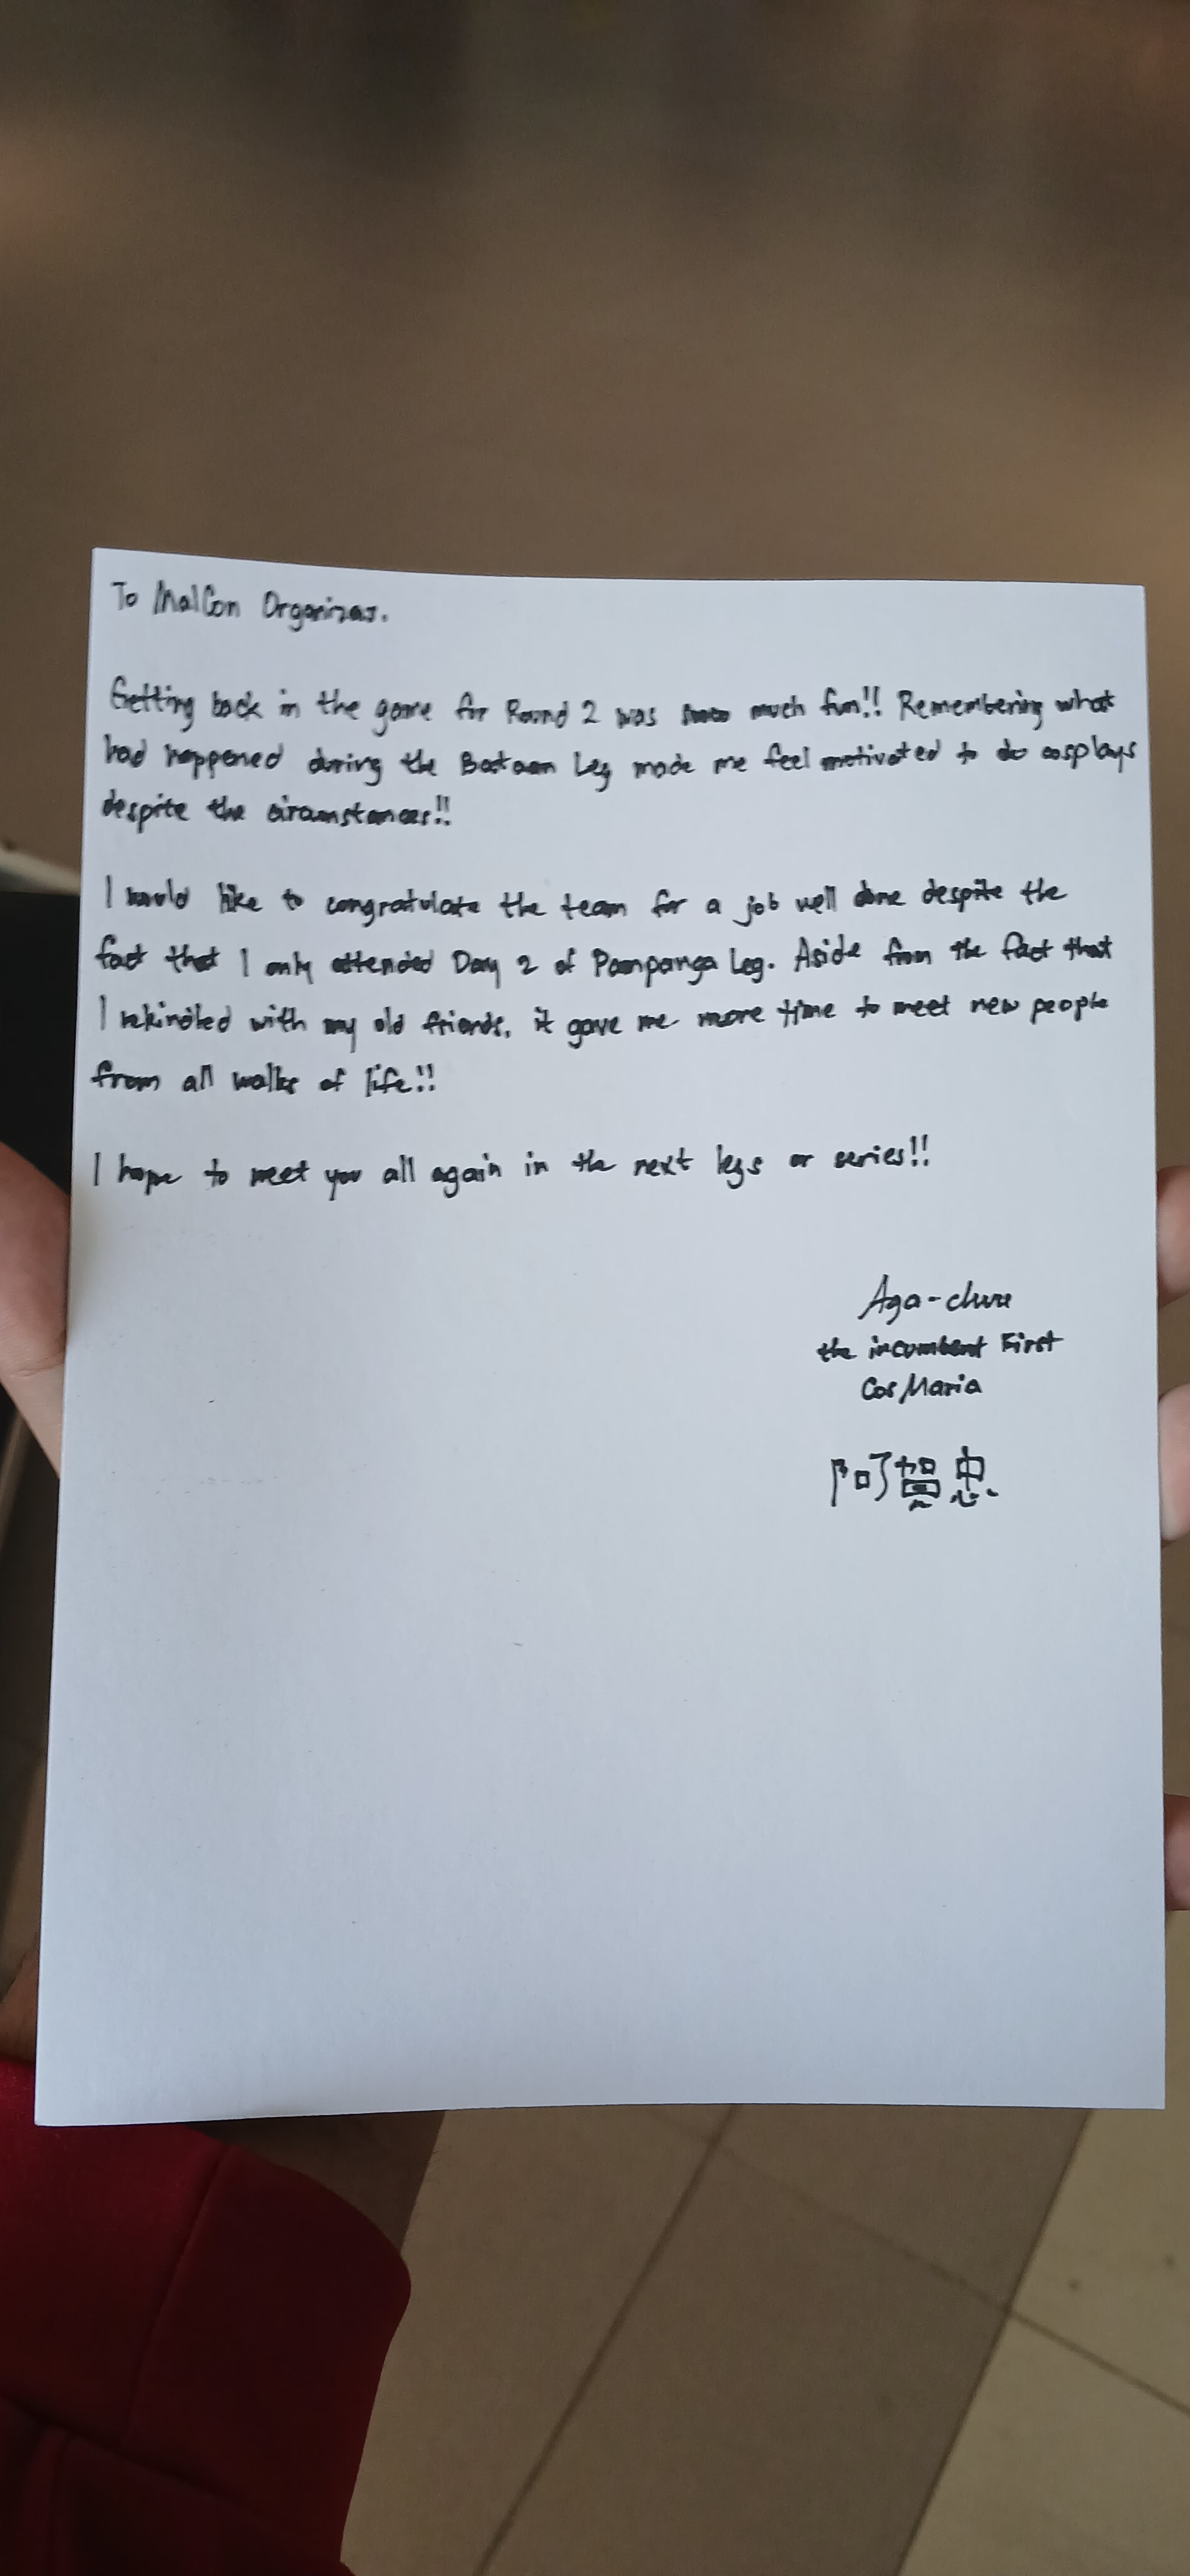 To MalCon Organizers.
Getting back in the game for Round 2 was sooo much fun!! Remembering what
had happened during the Bataan Leg made me feel motivated to do cosplays
despite the circumstances!!
I would like to congratulate the team for a job well done despite the
fact that I only attended Day 2 of Pampanga Leg. Aside from the fact that
I rekindled with my old friends, it gave me more time to meet new people
from all walks of life!!
I hope to meet you all again in the next legs or series!!
Aga-chuu
the incumbent First
CosMaria
阿賀忠